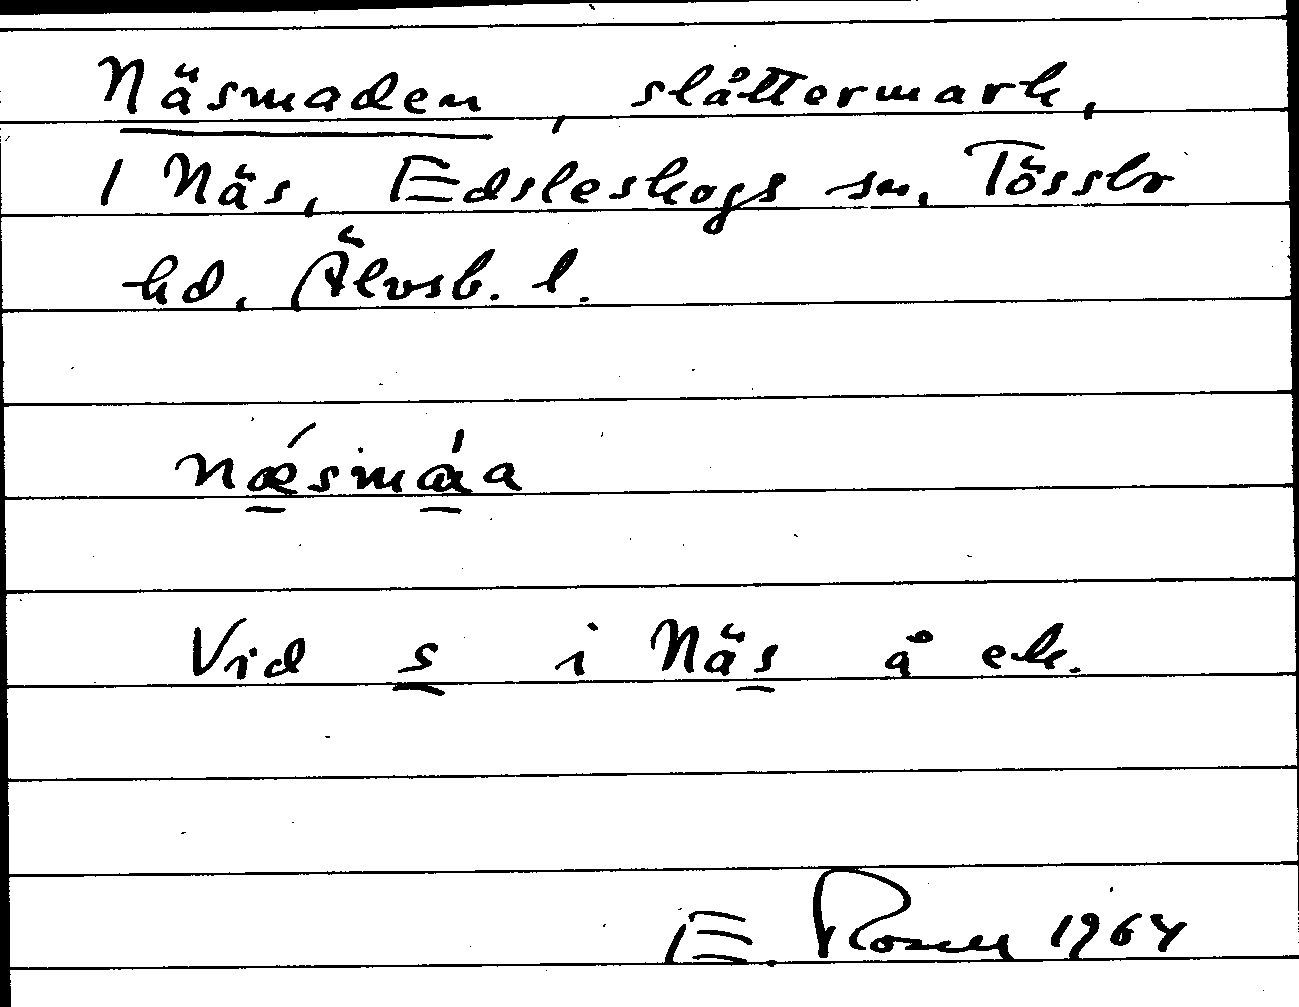 Näsmaden, slåttermark,
1 Näs, Edsleskogs sn. Tössbo
hd. Älvsb. l.
nǽ̱smɑ̱́a
Vid s i Näs å ek.
E. Rosell 1964